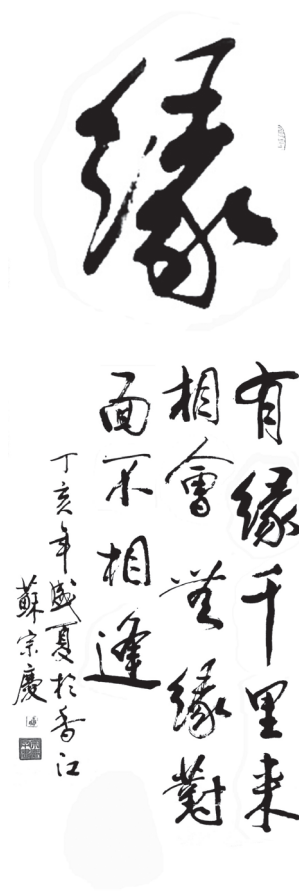 緣
有緣千里来
相會無緣對
面不相逢
丁亥年盛夏於香江
蘇宗慶